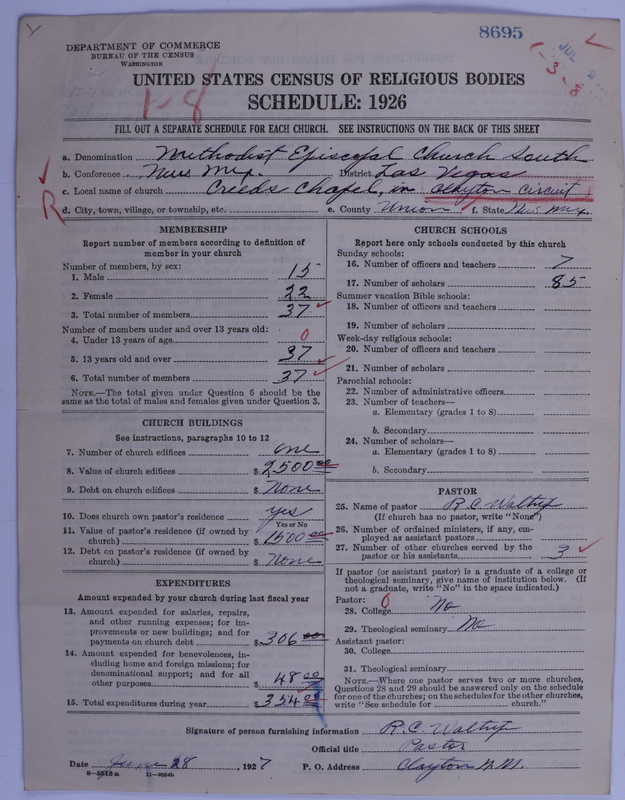 8695
JUL 2
1-3-8
DEPARTMENT OF COMMERCE
BUREAU OF THE CENSUS
WASHINGTON
UNITED STATES CENSUS OF RELIGIOUS BODIES
1-8
SCHEDULE: 1926
FILL OUT A SEPARATE SCHEDULE FOR EACH CHURCH. SEE INSTRUCTIONS ON THE BACK OF THIS SHEET
a. Denomination Methodist Episcopal Church South
b. Conference New Mex. District Las Vegas
c. Local name of church Creeds Chapel, in Clayton Circuit
R
d. City, town, village, or township, etc. e. County Union f. State New Mex.
MEMBERSHIP
Report number of members according to definition of
member in your church
Number of members, by sex:
1. Male 15
2. Female 22
3. Total number of members 37
Number of members under and over 13 years old:
4. Under 13 years of age 0
5. 13 years old and over 37
6. Total number of members 37
NOTE.—The total given under Question 6 should be the
same as the total of males and females given under Question 3.
CHURCH BUILDINGS
See instructions, paragraphs 10 to 12
7. Number of church edifices one
8. Value of church edifices $2500 00
9. Debt on church edifices $None
10. Does church own pastor's residence yes
Yes or No
11. Value of pastor's residence (if owned by
church) $1500 00
12. Debt on pastor's residence (if owned by
church) $None
EXPENDITURES
Amount expended by your church during last fiscal year
13. Amount expended for salaries, repairs,
and other running expenses; for im-
provements or new buildings; and for
payments on church debt $306 00
14. Amount expended for benevolences, in-
cluding home and foreign missions; for
denominational support; and for all
other purposes $48 00
15. Total expenditures during year $354 00
CHURCH SCHOOLS
Report here only schools conducted by this church
Sunday schools:
16. Number of officers and teachers 7
17. Number of scholars 85
Summer vacation Bible schools:
18. Number of officers and teachers
19. Number of scholars
Week-day religious schools:
20. Number of officers and teachers
21. Number of scholars
Parochial schools:
22. Number of administrative officers
23. Number of teachers—
a. Elementary (grades 1 to 8)
b. Secondary
24. Number of scholars—
a. Elementary (grades 1 to 8)
b. Secondary
PASTOR
25. Name of pastor R.C. Waltrip
(If church has no pastor, write "None")
26. Number of ordained ministers, if any, em-
ployed as assistant pastors
27. Number of other churches served by the
pastor or his assistants 3
If pastor (or assistant pastor) is a graduate of a college or
theological seminary, give name of institution below. (If
not a graduate, write "No" in the space indicated.)
Pastor: 0
28. College No
29. Theological seminary No
Assistant pastor:
30. College
31. Theological seminary
NOTE.—Where one pastor serves two or more churches,
Questions 28 and 29 should be answered only on the schedule
for one of the churches; on the schedules for the other churches,
write "See schedule for church."
Signature of person furnishing information R.C. Waltrip
Official title Pastor
Date June 28, 1927 P. O. Address Clayton N.M.
8—5513 a 11—9554b